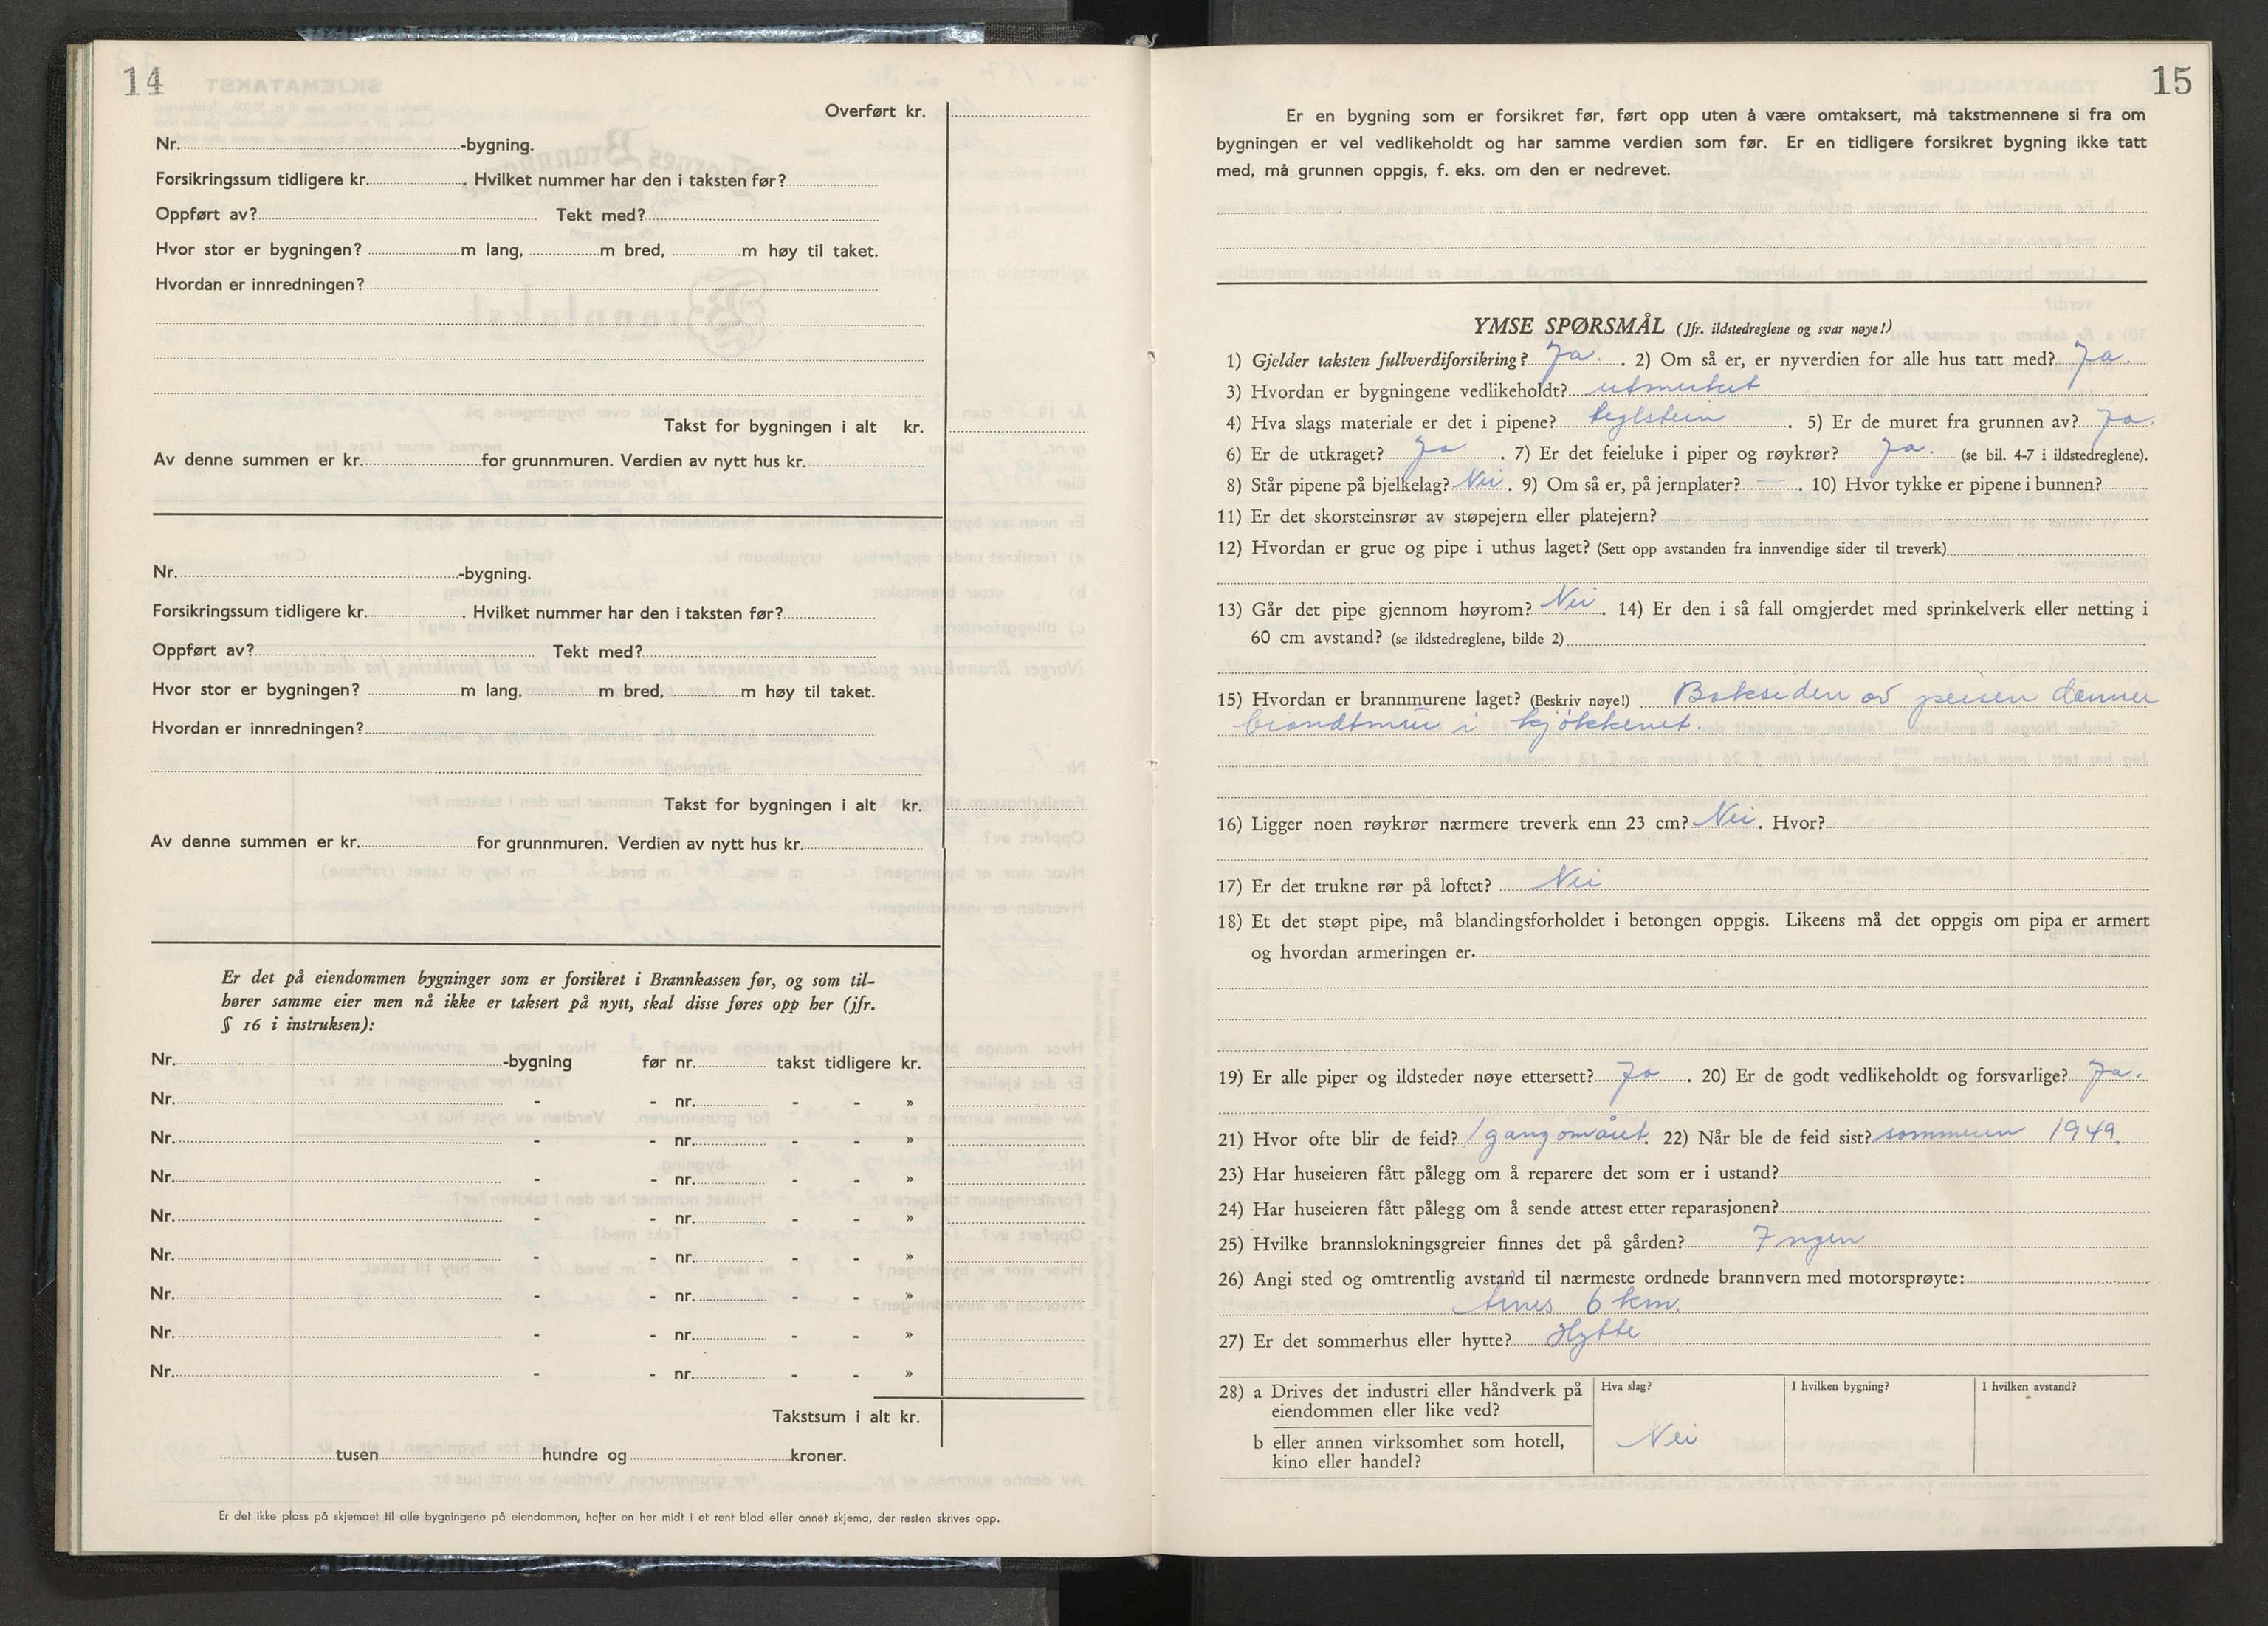 14
Overført kr.
Nr. -bygning.
Forsikringssum tidligere kr. . Hvilket nummer har den i taksten før?
Oppført av? Tekt med?
Hvor stor er bygningen? m lang, m bred, m høy til taket.
Hvordan er innredningen?
Takst for bygningen i alt kr.
Av denne summen er kr. for grunnmuren. Verdien av nytt hus kr.
Nr. -bygning.
Forsikringssum tidligere kr. . Hvilket nummer har den i taksten før?
Oppført av? Tekt med?
Hvor stor er bygningen? m lang, m bred, m høy til taket.
Hvordan er innredningen?
Takst for bygningen i alt kr.
Av denne summen er kr. for grunnmuren. Verdien av nytt hus kr.
Er det på eiendommen bygninger som er forsikret i Brannkassen før, og som til-
hører samme eier men nå ikke er taksert på nytt, skal disse føres opp her (jfr.
§ 16 i instruksen):
Nr. -bygning før nr. takst tidligere kr.
Nr. - - nr. - - »
Nr. - - nr. - - »
Nr. - - nr. - - »
Nr. - - nr. - - »
Nr. - - nr. - - »
Nr. - - nr. - - »
Nr. - - nr. - - »
Nr. - - nr. - - »
Takstsum i alt kr.
tusen hundre og kroner.
Er det ikke plass på skjemaet til alle bygningene på eiendommen, hefter en her midt i et rent blad eller annet skjema, der resten skrives opp.
15
Er en bygning som er forsikret før, ført opp uten å være omtaksert, må takstmennene si fra om
bygningen er vel vedlikeholdt og har samme verdien som før. Er en tidligere forsikret bygning ikke tatt
med, må grunnen oppgis, f. eks. om den er nedrevet.
YMSE SPØRSMÅL (Jfr. ildstedreglene og svar nøye!)
1) Gjelder taksten fullverdiforsikring? Ja . 2) Om så er, er nyverdien for alle hus tatt med? Ja.
3) Hvordan er bygningene vedlikeholdt? utmerket
4) Hva slags materiale er det i pipene? teglstein . 5) Er de muret fra grunnen av? Ja.
6) Er de utkraget? Ja . 7) Er det feieluke i piper og røykrør? Ja. (se bil. 4-7 i ildstedreglene).
8) Står pipene på bjelkelag? Nei . 9) Om så er, på jernplater? — . 10) Hvor tykke er pipene i bunnen?
11) Er det skorsteinsrør av støpejern eller platejern?
12) Hvordan er grue og pipe i uthus laget? (Sett opp avstanden fra innvendige sider til treverk)
13) Går det pipe gjennom høyrom? Nei . 14) Er den i så fall omgjerdet med sprinkelverk eller netting i
60 cm avstand? (se ildstedreglene, bilde 2)
15) Hvordan er brannmurene laget? (Beskriv nøye!) Baksiden av peisen danner
brandtmur i kjøkkenet.
16) Ligger noen røykrør nærmere treverk enn 23 cm? Nei . Hvor?
17) Er det trukne rør på loftet? Nei
18) Et det støpt pipe, må blandingsforholdet i betongen oppgis. Likeens må det oppgis om pipa er armert
og hvordan armeringen er.
19) Er alle piper og ildsteder nøye ettersett? Ja . 20) Er de godt vedlikeholdt og forsvarlige? Ja.
21) Hvor ofte blir de feid? 1 gang om året. 22) Når ble de feid sist? sommeren 1949.
23) Har huseieren fått pålegg om å reparere det som er i ustand?
24) Har huseieren fått pålegg om å sende attest etter reparasjonen?
25) Hvilke brannslokningsgreier finnes det på gården? Ingen
26) Angi sted og omtrentlig avstand til nærmeste ordnede brannvern med motorsprøyte:
Årnes 6 km.
27) Er det sommerhus eller hytte? Hytte
28) a Drives det industri eller håndverk på
eiendommen eller like ved?
b eller annen virksomhet som hotell,
kino eller handel?
Hva slag?
Nei
I hvilken bygning?
I hvilken avstand?